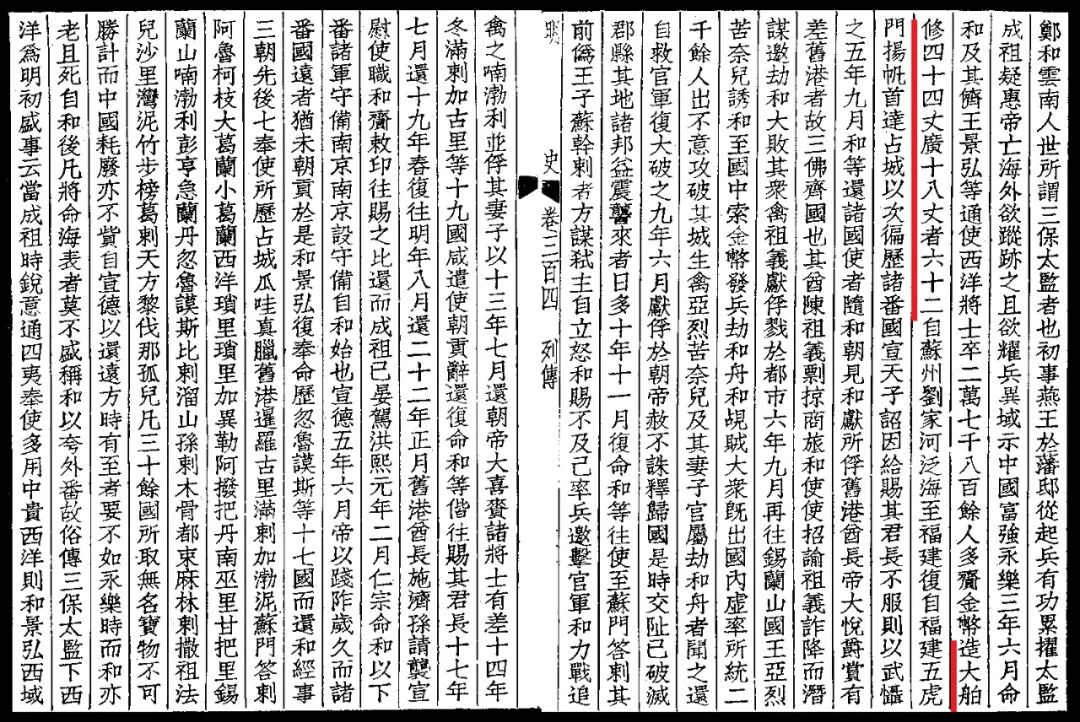 鄭和雲南人世所謂三保太監者也初事燕王於藩邸從起兵有功累擢太監
成祖疑惠帝亡海外欲蹤跡之且欲耀兵異域示中國富強永樂三年六月命
和及其儕王景弘等通使西洋將士卒二萬七千八百餘人多齎金幣造大舶
修四十四丈廣十八丈者六十二自蘇州劉家河泛海至福建復自福建五虎
門揚帆首達占城以次徧歷諸番國宣天子詔因給賜其君長不服則以武懾
之五年九月和等還諸國使者隨和朝見和獻所俘舊港酋長帝大悅爵賞有
差舊港者故三佛齊國也其酋陳祖義剽掠商旅和使使招諭祖義詐降而潛
謀邀劫和大敗其衆禽祖義獻俘戮於都市六年九月再往錫蘭山國王亞烈
苦奈兒誘和至國中索金幣發兵劫和舟和覘賊大衆旣出國內虛率所統二
千餘人出不意攻破其城生禽亞烈苦奈兒及其妻子官屬劫和舟者聞之還
自救官軍復大破之九年六月獻俘於朝帝赦不誅釋歸國是時交阯已破滅
郡縣其地諸邦益震讋來者日多十年十一月復命和等往使至蘇門答剌其
前僞王子蘇幹剌者方謀弒主自立怒和賜不及己率兵邀擊官軍和力戰追
史 卷三百四 列傳
禽之喃渤利並俘其妻子以十三年七月還朝帝大喜賚諸將士有差十四年
冬滿剌加古里等十九國咸遣使朝貢辭還復命和等偕往賜其君長十七年
七月還十九年春復往明年八月還二十二年正月舊港酋長施濟孫請襲宣
慰使職和齎敕印往賜之比還而成祖已晏駕洪熙元年二月仁宗命和以下
番諸軍守備南京南京設守備自和始也宣德五年六月帝以踐阼歲久而諸
番國遠者猶未朝貢於是和景弘復奉命歷忽魯謨斯等十七國而還和經事
三朝先後七奉使所歷占城瓜哇真臘舊港暹羅古里滿剌加渤泥蘇門答剌
阿魯柯枝大葛蘭小葛蘭西洋瑣里瑣里加異勒阿撥把丹南巫里甘把里錫
蘭山喃渤利彭亨急蘭丹忽魯謨斯比剌溜山孫剌木骨都束麻林剌撒祖法
兒沙里灣泥竹步榜葛剌天方黎伐那孤兒凡三十餘國所取無名寶物不可
勝計而中國耗廢亦不貲自宣德以還遠方時有至者要不如永樂時而和亦
老且死自和後凡將命海表者莫不盛稱和以夸外番故俗傳三保太監下西
洋爲明初盛事云當成祖時銳意通四夷奉使多用中貴西洋則和景弘西域